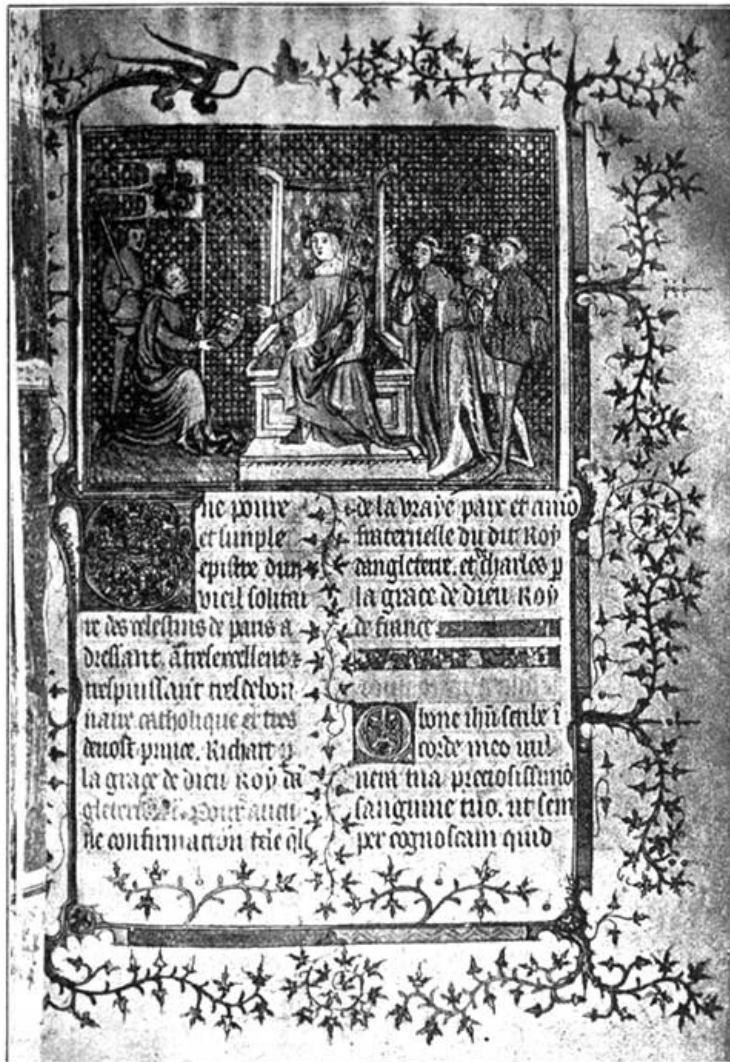 ne poure
et simple
epistre dun
vieil solitai
re des celestins de paris a
dressant. a tresexcellent ⁊
trespuissant tresdebon
naire catholique et tres
devost prince. Richart p̲
la grace de dieu Roy dā
gleterre
ne confirmacion tele q̄l
de la vraye paix et amō
fraternelle du dit Roy
dangleterre. et charles p̲
la grace de dieu Roy
de france
O bone ihū scribe ī
corde meo vul
nera tua preciosissimo
sanguine tuo. ut sem
per cognoscam quid